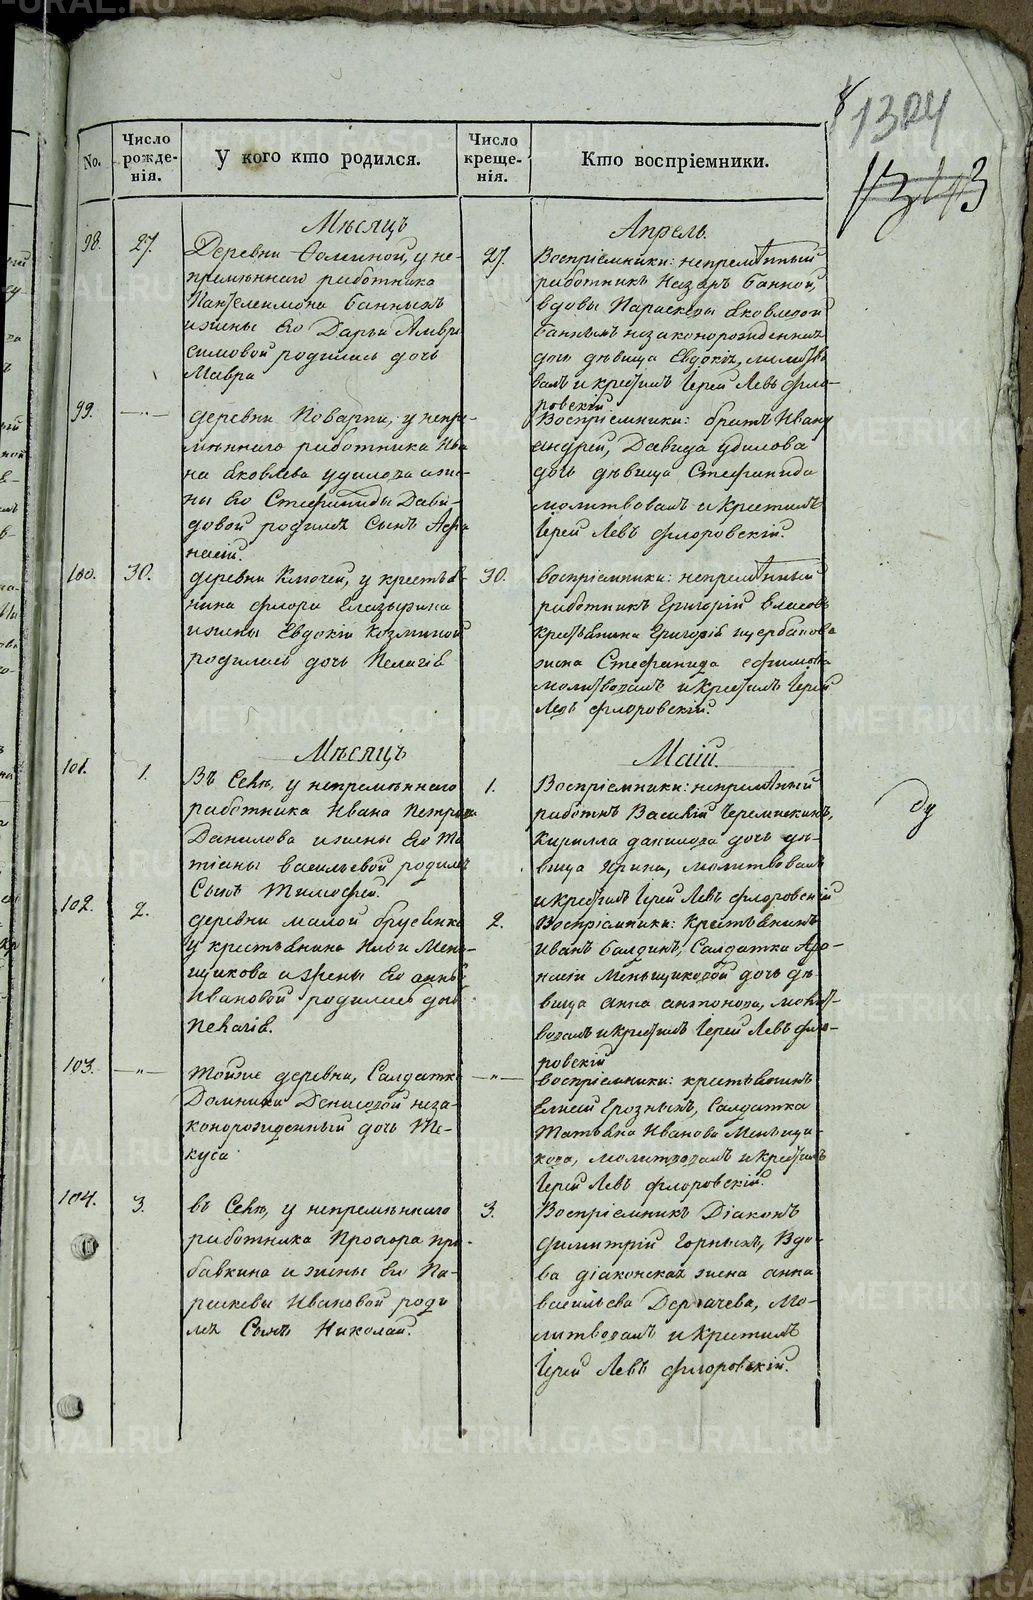 1304
No.
Число рожде-нія.
У кого кто родился.
Число креще-нія.
Кто воспріемники.
Мѣсяцъ
Апрель.
98.
27.
Деревни Фоминой, у не-
премѣннаго работника
Пантелеимона Банныхъ
и жены Его Дарьи Амвро
симовой родилась дочь
Мавра
27.
Воспріемники: непремѣнный
работникъ Назаръ Банной,
вдовы Параскевы Яковлевой
Банныхъ незаконорожденная
дочь дѣвица Евдокія, молитво
валъ и крестилъ Іерей Левъ Фло-
ровскій
99.
— " —
деревни Поварни, у непре-
мѣннаго работника Ива
на Яковлева Удилова и же-
ны Его Стефаниды Дави-
довой родился сынъ Афа
насій.
Воспріемники: братъ Ивану
Андрей, Давида Удилова
дочь дѣвица Стефанида
молитвовалъ и крестилъ
Іерей Левъ Флоровскій.
100.
30.
деревни Ключей, у крестья
нина Флора Елезырина
и жены Евдокіи Козминой
родилась дочь Пелагія
30.
воспріемники: непремѣнный
работникъ Григорій Власовъ
крестьянина Григорія Щербакова
жена Стефанида Ефимова
молитвовалъ и крестилъ Іерей
Левъ Флоровскій.
Мѣсяцъ
Маій.
101.
1.
Въ Селѣ, у непремѣннаго
работника Ивана Петрова
Данилова и жены Его Та
тіаны Васильевой родился
Сынъ Тимофей.
1.
Воспріемники: непремѣнный
работникъ Василій Черемискинъ,
Кирилла Данилова дочь дѣ-
вица Ирина, молитвовалъ
и крестилъ Іерей Левъ Флоровскій
102.
2.
деревни малой брусянки
у крестьянина Ильи Мень-
щикова и жены Его Анны
Ивановой родилась дочь
Пелагія.
2.
Воспріемники: Крестьянинъ
Иванъ Балдинъ, Салдатки Афо-
насіи Меньщиковой дочь дѣ-
вица Анна Антонова, молит-
вовалъ и крестилъ Іерей Левъ Фло-
ровскій
103.
— " —
тойже деревни, Салдатки
Домники Денисовой неза-
конорожденный дочь Фе-
куса
— " —
воспріемники: крестьянинъ
Елисей Ерозныхъ, Салдатка
Татьяна Иванова Меньщи-
кова, молитвовалъ и крестилъ
Іерей Левъ Флоровскій.
104.
3.
въ Селѣ, у непремѣннаго
работника Прохора При-
бавкина и жены Его Па-
раскевы Ивановой роди
лся Сынъ Николай.
3.
Воспріемникъ Діаконъ
Димитрій Горныхъ, Вдо-
ва діаконская жена Анна
Васильева Дергачева, мо-
литвовалъ и крестилъ
Іерей Левъ Флоровскій.
METRIKI.GASO-URAL.RU